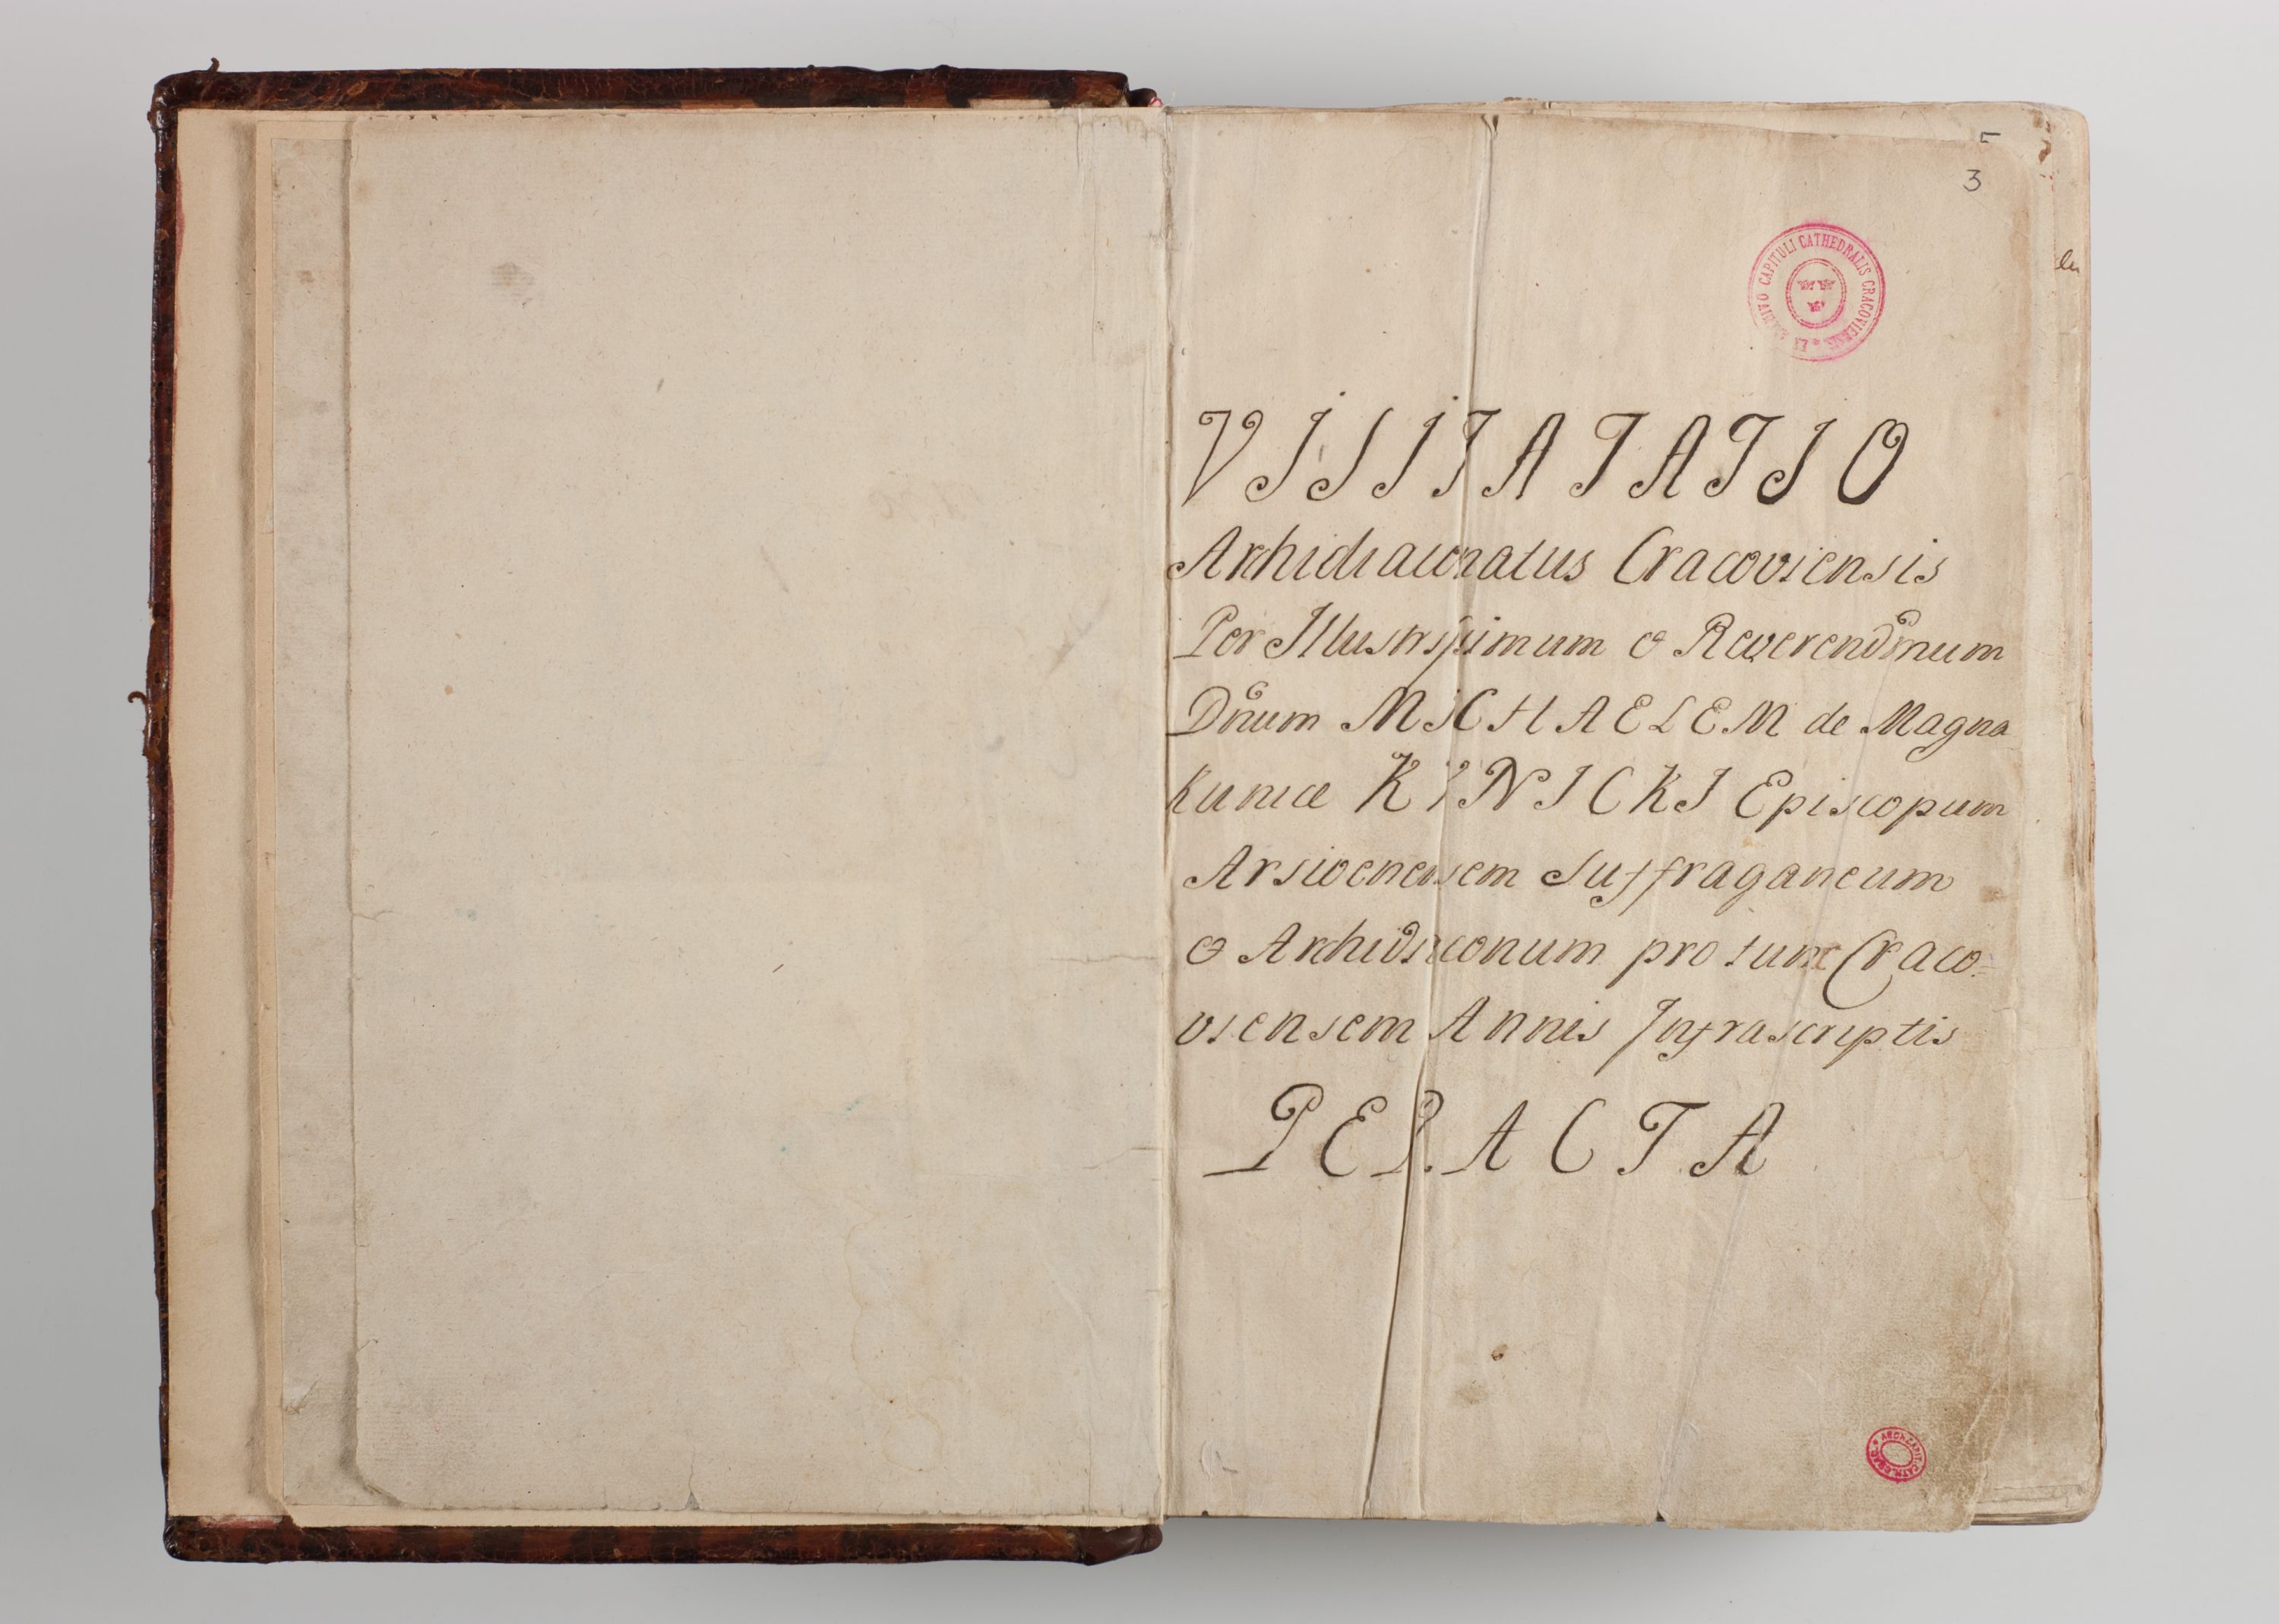 5
3
EX ARCHIVO CAPITULI CATHEDRALIS CRACOVIENSIS
VISITATATIO
Archidiaconatus Cracoviensis
Per Illustrissimum & Reverendmum
Dnum MICHAELEM de Magna
Kunicæ KUNICKI Episcopum
Arsioenensem Suffraganeum
& Archidiaconum pro tunc Craco=
viensem Annis Infrascriptis
PERACTA
ARCH. CAPIT. CATH. CRAC.